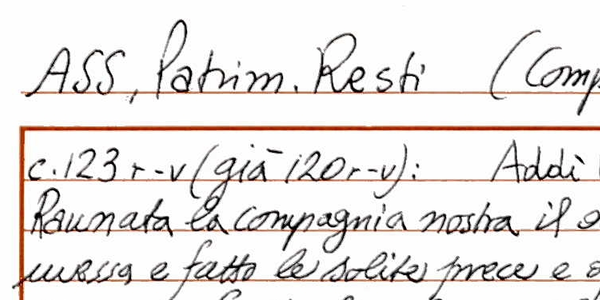 ASS, Patrim. Resti (Comp
c. 123 r-v (già 120r-v): Addì
Raunata la compagnia nostra il
messa e fatto le solite prece e